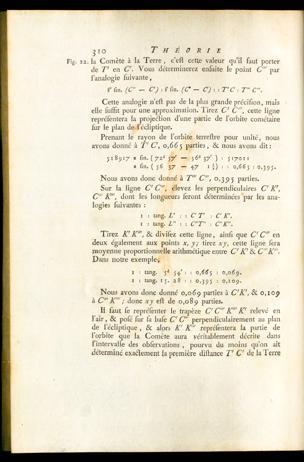 310 THÉORIE
Fig. 22. la Comète à la Terre, c'est cette valeur qu'il faut porter
de T' en C'. Vous déterminerez ensuite le point C''' par
l'analogie suivante,
t' sin. (C''' — C'') : t''' sin. (C'' — C') :: T' C' : T''' C'''.
Cette analogie n'est pas de la plus grande précision, mais
elle suffit pour une approximation. Tirez C' C''', cette ligne
représentera la projection d'une partie de l'orbite cométaire
sur le plan de l'écliptique.
Prenant le rayon de l'orbite terrestre pour unité, nous
avons donné à T' C', 0,665 parties, & nous avons dit:
Nous avons donc donné à T''' C''', 0,395 parties.
Sur la ligne C' C''', élevez les perpendiculaires C' K',
C''' K''', dont les longueurs seront déterminées par les ana-
logies suivantes :
1 : tang. L' :: C' T' : C' K'.
1 : tang. L''' :: C''' T''' : C''' K'''.
Tirez K' K''', & divisez cette ligne, ainsi que C' C''' en
deux également aux points x, y; tirez xy, cette ligne sera
moyenne proportionnelle arithmétique entre C' K' & C''' K'''.
Dans notre exemple,
1 : tang. 5° 54' :: 0,665 : 0,069.
1 : tang. 15. 28 :: 0,395 : 0,109.
Nous avons donc donné 0,069 parties à C' K', & 0,109
à C''' K'''; donc xy est de 0,089 parties.
Il faut se représenter le trapèze C' C''' K''' K' relevé en
l'air, & posé sur sa base C' C''' perpendiculairement au plan
de l'écliptique, & alors K' K''' représentera la partie de
l'orbite que la Comète aura véritablement décrite dans
l'intervalle des observations, pourvu du moins qu'on ait
déterminé exactement la première distance T' C' de la Terre